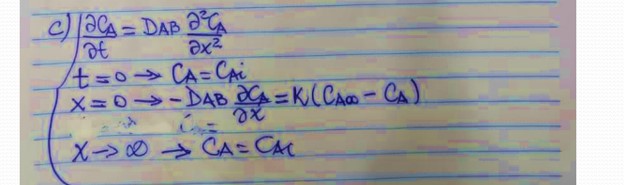 c) ∂CA/∂t = DAB ∂²CA/∂x²
t = 0 → CA = CAi
x = 0 → -DAB ∂CA/∂x = K(CA∞ - CA)
x → ∞ → CA = CAi